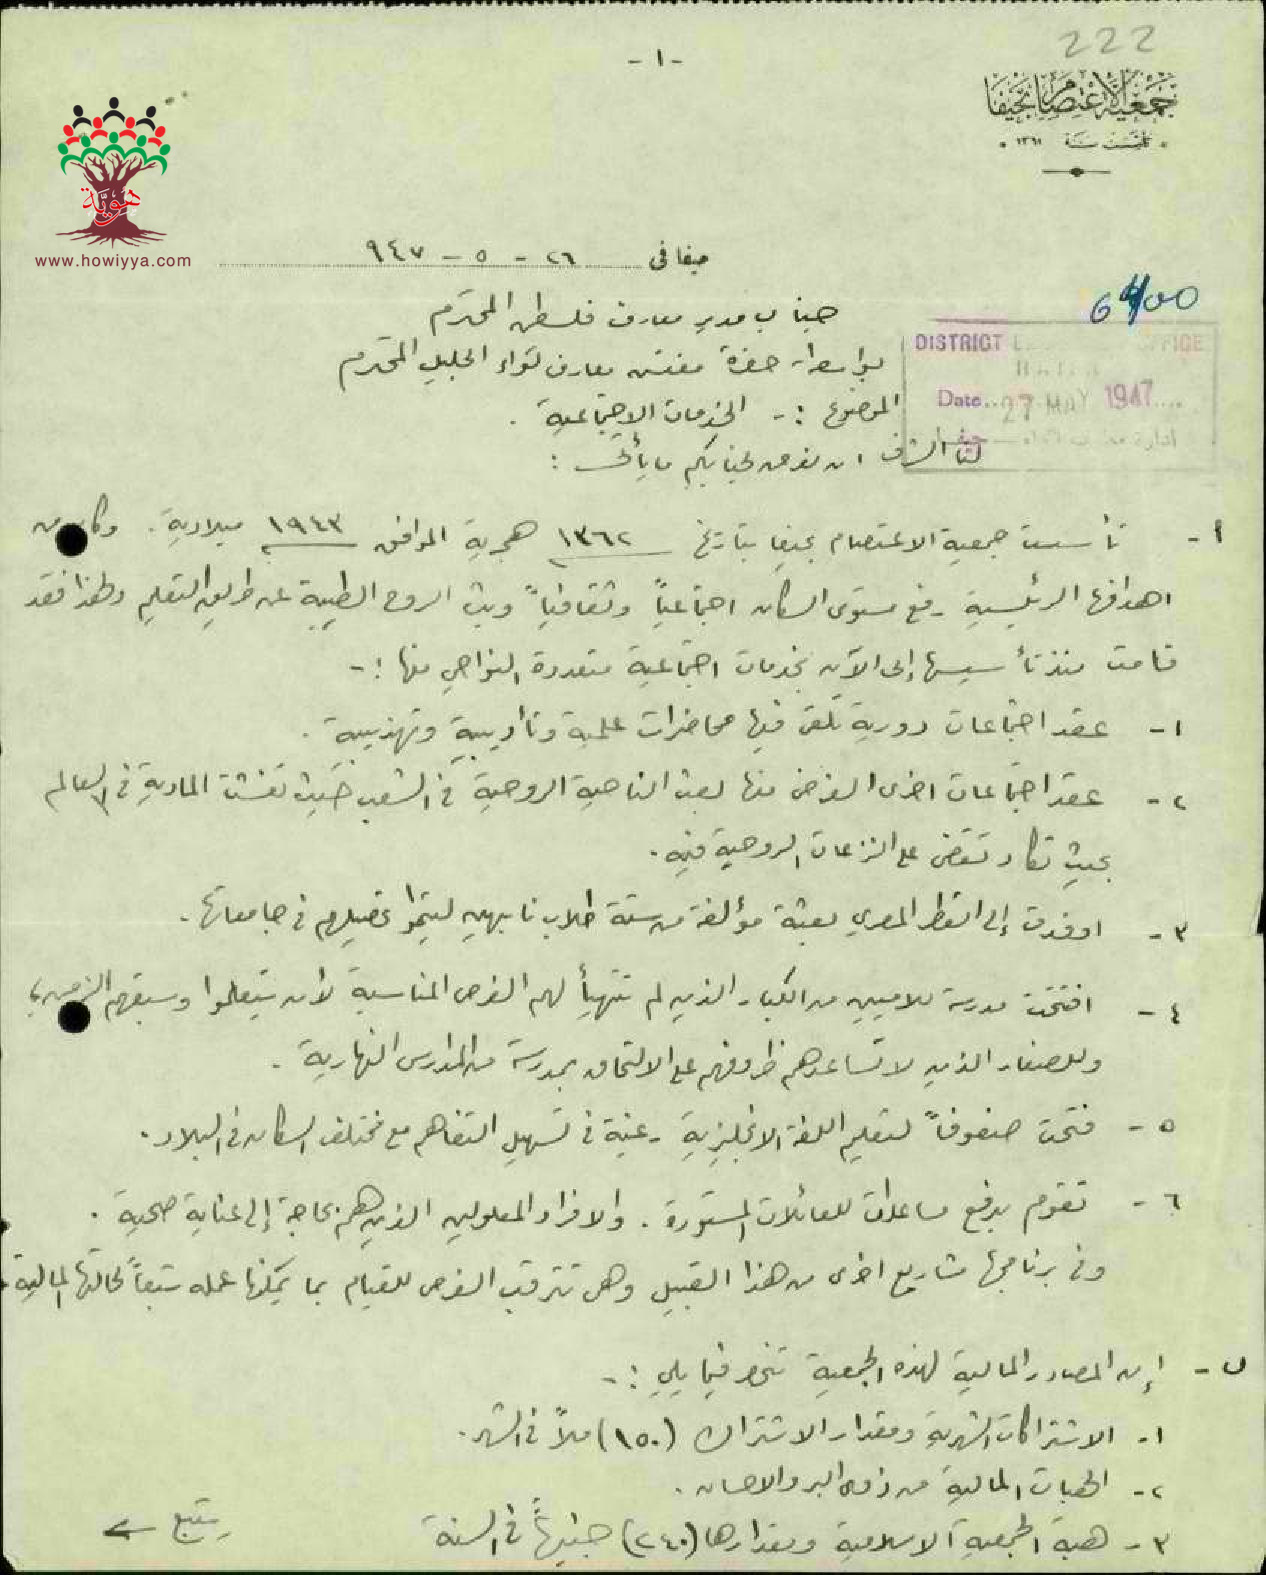 222
- ١ -
جمعية الاعتصام بحيفا
تأسست سنة ١٣٦١
هوية
www.howiyya.com
حيفا في ٢٦ - ٥ - ٩٤٧
6400
جناب مدير معارف فلسطين المحترم
DISTRICT OFFICE
بواسطة حضرة مفتش معارف لواء الجليل المحترم
HAIFA
Date.. 27 MAY 1947....
الموضوع :- الخدمات الاجتماعية .
لنا الشرف ان نعرض لجنابكم ما يأتي :
أ - تأسست جمعية الاعتصام بحيفا بتاريخ ١٣٦٢ هجرية الموافق ١٩٤٣ ميلادية . وكان من
اهدافها الرئيسية رفع مستوى السكان اجتماعياً وثقافياً وبث الروح الطيبة عن طريق التعليم ولهذا فقد
قامت منذ تأسيسها إلى الآن بخدمات اجتماعية متعددة النواحي منها :-
١ - عقد اجتماعات دورية تلقى فيها محاضرات علمية وتأديبية وتهذيبية .
٢ - عقد اجتماعات اخرى الغرض منها بعث الناحية الروحية في الشعب حيث تفشت المادية في العالم
بحيث تكاد تقضي على النزعات الروحية فيه .
٣ - اوفدت إلى القطر المصري بعثة مؤلفة من ستة طلاب نابهين ليتموا تحصيلهم في جامعاتها .
٤ - افتتحت مدرسة للاميين من الكبار الذين لم تتهيأ لهم الفرص المناسبة لأن يتعلموا وسبقهم الزمن ،
وللصغار الذين لا تساعدهم ظروفهم على الالتحاق بمدرسة من المدارس النهارية .
٥ - فتحت صفوفاً لتعليم اللغة الانجليزية رغبة في تسهيل التفاهم مع مختلف السكان في البلاد .
٦ - تقوم بدفع مساعدات للعائلات المستورة . والافراد المعلولين الذين هم بحاجة إلى عناية صحية .
وفي برنامجها مشاريع اخرى من هذا القبيل وهي تترقب الفرص للقيام بما يمكنها عمله تبعاً لحالتها المالية .
ب - إن المصادر المالية لهذه الجمعية تنحصر فيما يلي :-
١ - الاشتراكات الشهرية ومقدار الاشتراك (١٥٠) ملاً في الشهر .
٢ - الهبات المالية من ذوي البر والاحسان .
٣ - هبة الجمعية الاسلامية ومقدارها (٢٤٠) جنيهاً في السنة
يتبع